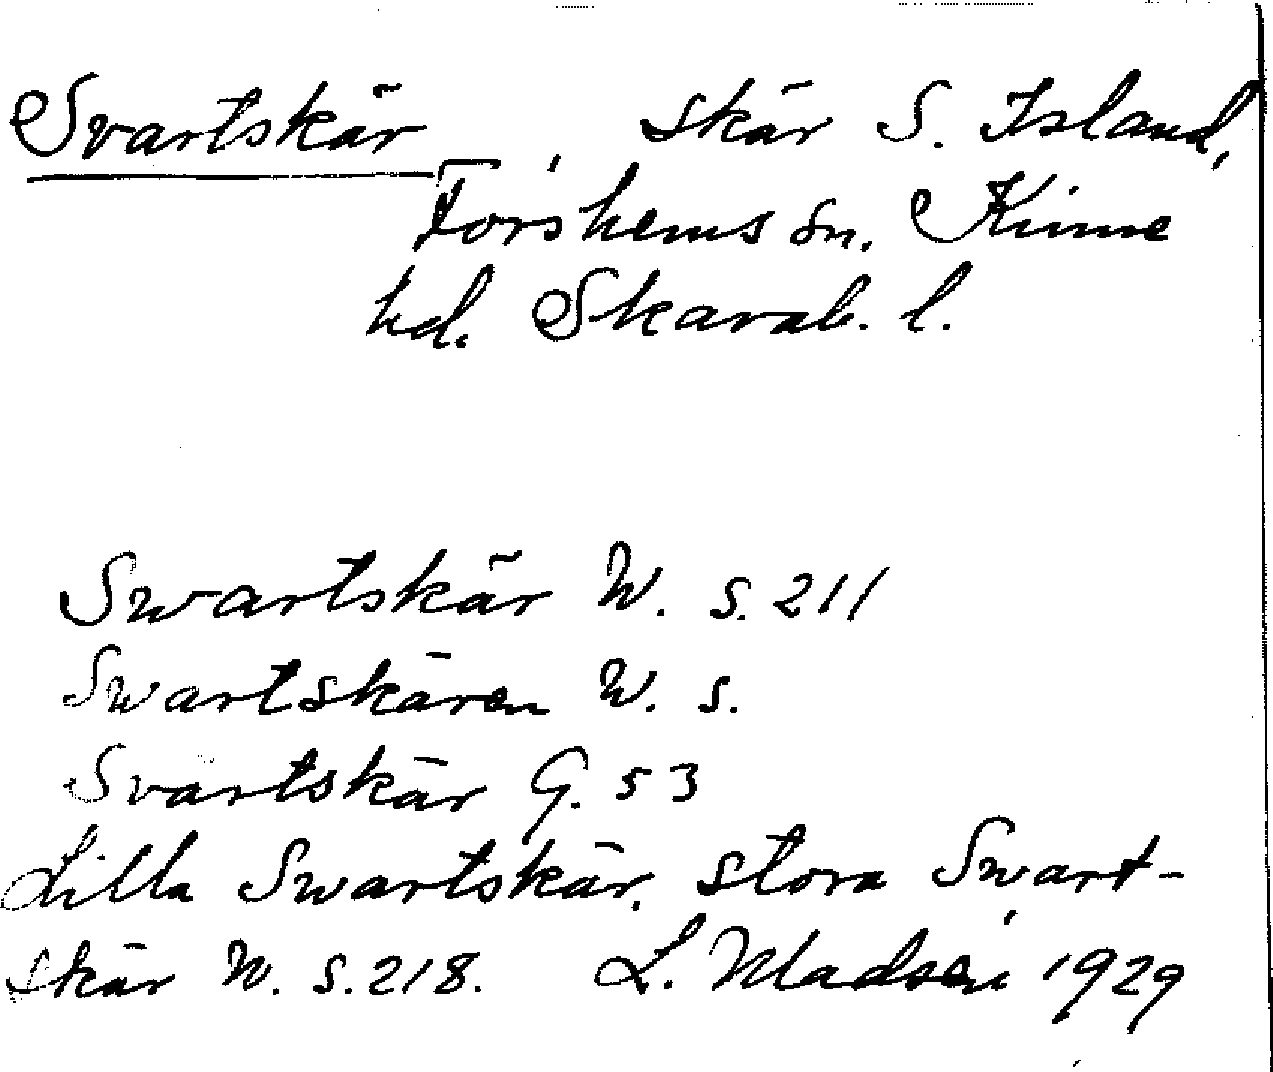 Svartskär, skär S. Island,
Forshems sn. Kinne
hd. Skarab. l.
Swartskär W. s. 211
Swartskären W. s.
Svartskär G. 53
Lilla Swartskär, stora Swart-
skär W. s. 218. L. Madsén 1929